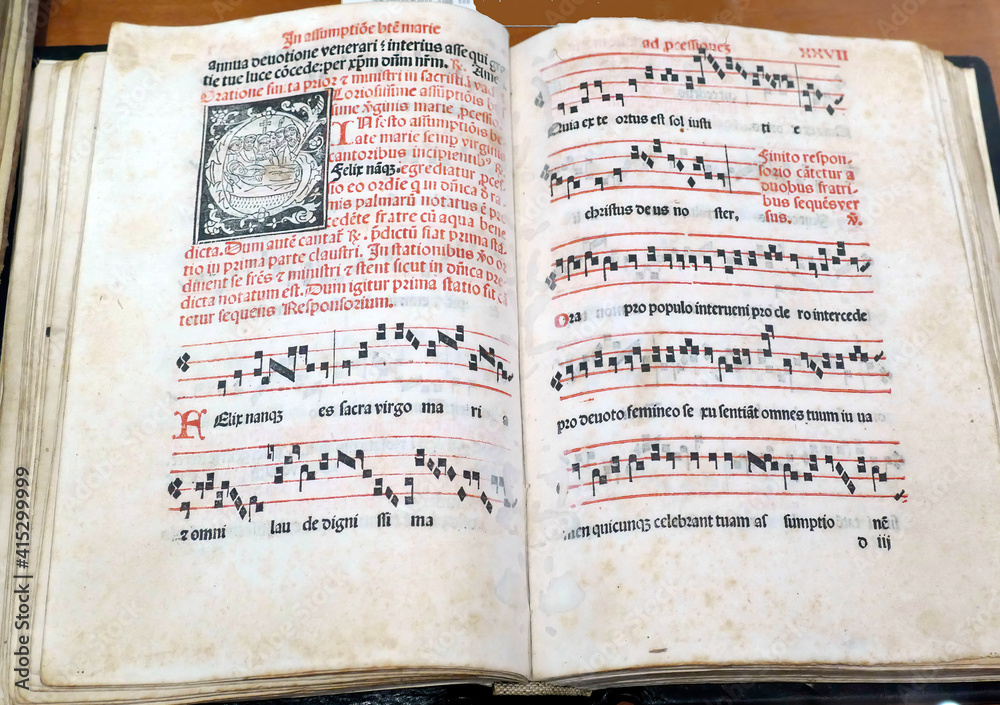 In assumptiõe btẽ marie
annua deuotione venerari ⁊ interius asse qui
tie tue luce cõcede: per xp̃m dñm nr̃m. ℟. Ame
Oratione finita prior ⁊ ministri in sacristia
loriosissime assũptiõis
sime v̓ginis marie ,pcessio
IN festo assumptiõis
ate marie semp̲ virginis
cantoribus incipientib⁹ ℟.
Felix nãq̃. egrediatur ,pces
io eo ordĩe q in dñica
mis palmarũ notatus ẽ
cedẽte fratre cũ aqua bene
dicta. Dum autẽ cantat̃ ℟. p̃dictũ fiat prima sta
tio in prima parte claustri. In stationibus v̓o or
dinent se fr̃es ⁊ ministri ⁊ stent sicut in dñica pre
dicta notatum est. Dum igitur prima statio fit cã
tetur sequens Responsorium.
FElix nanqꝫ es sacra virgo ma ri a
⁊ omni lau de digni ssi ma
ad ,pcessionez XXVII
Quia ex te ortus est sol iusti ti e
christus de us no ster,
Finito respon-
sorio cãtetur a
duobus fratri-
bus sequẽs ver
sus. ℣.
Ora pro populo interueni pro cle ro intercede
pro deuoto femineo se xu sentiãt omnes tuum iu ua
men quicunqꝫ celebrant tuam as sumptio nẽ
D iij
Adobe Stock | #415299999